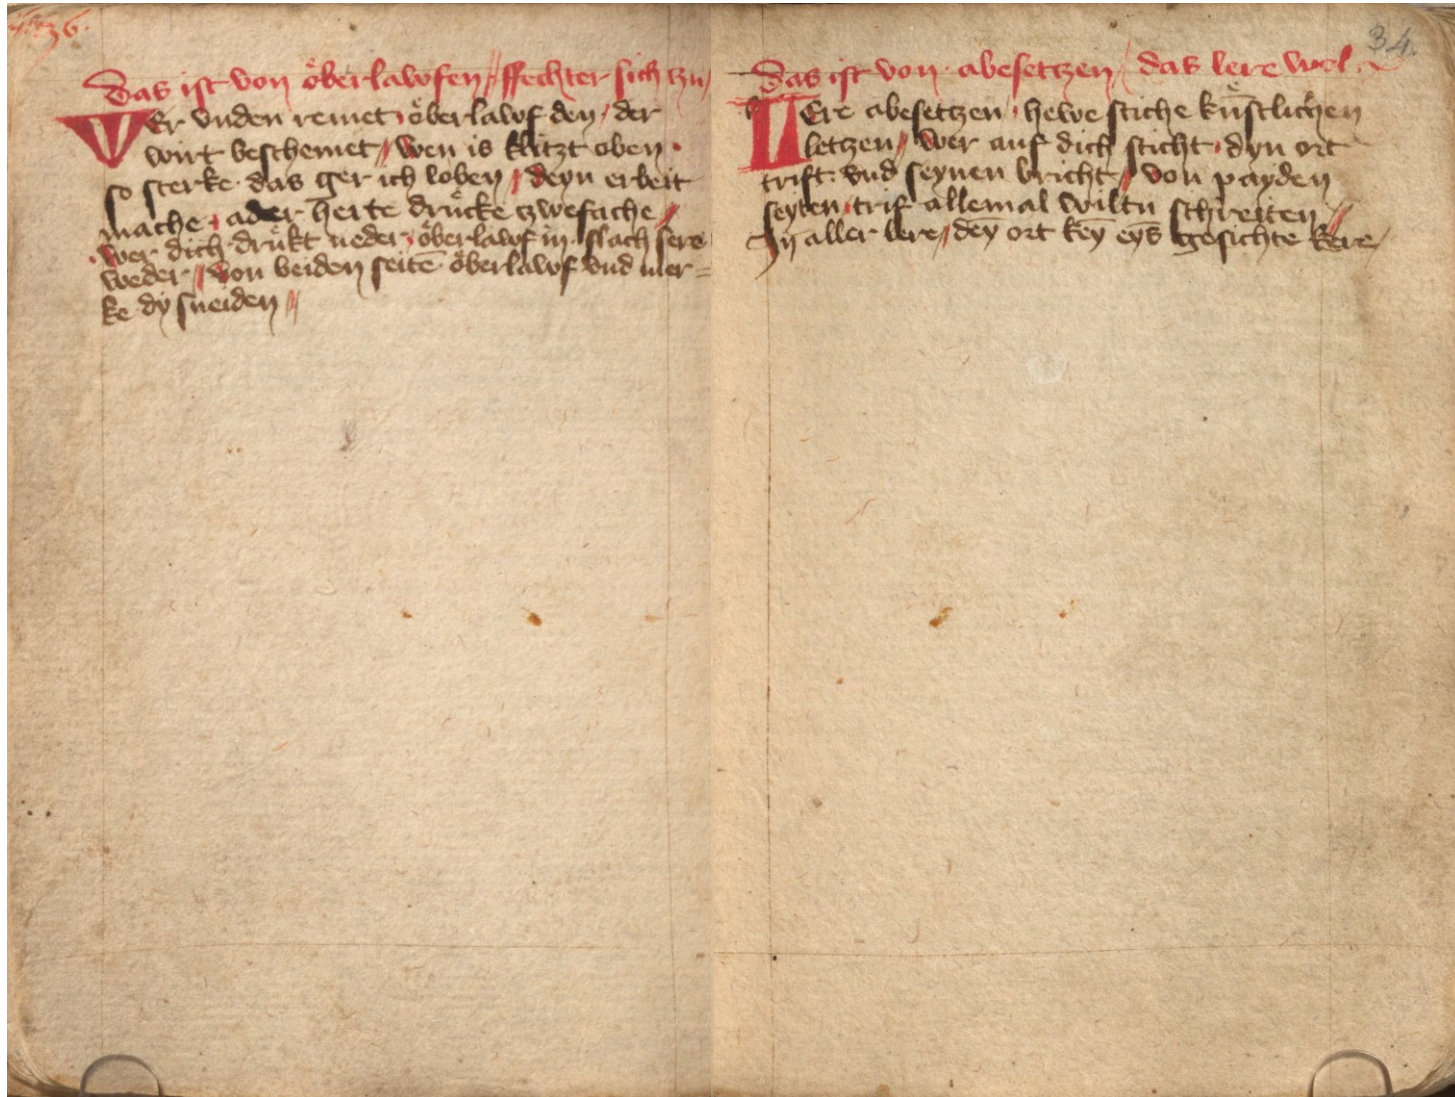 36.
Das ist von öberlawfen // ffechter sich tzu /
WEr vnden remet · öberlawf den / der
wirt beschemet // wen is klitzt oben ·
so sterke · das ger ich loben // deyn erbeit
mache · ader herte drücke tzwefache //
· wer dich drükt neder · öberlawf in · slach sere
weder // von beiden seitē öberlawf vnd mer=
ke dy sneiden //
34.
Das ist von abesetzen / das lere wol ·
LEre abesetzen · hewe stiche kůstlichen
letzen // wer auf dich sticht · dyn ort
trift · vnd seynen bricht // von payden
seyten · trif allemal wiltu schreiten //
Iñ aller lere // deȳ ort kēy eȳs gesichte kere /